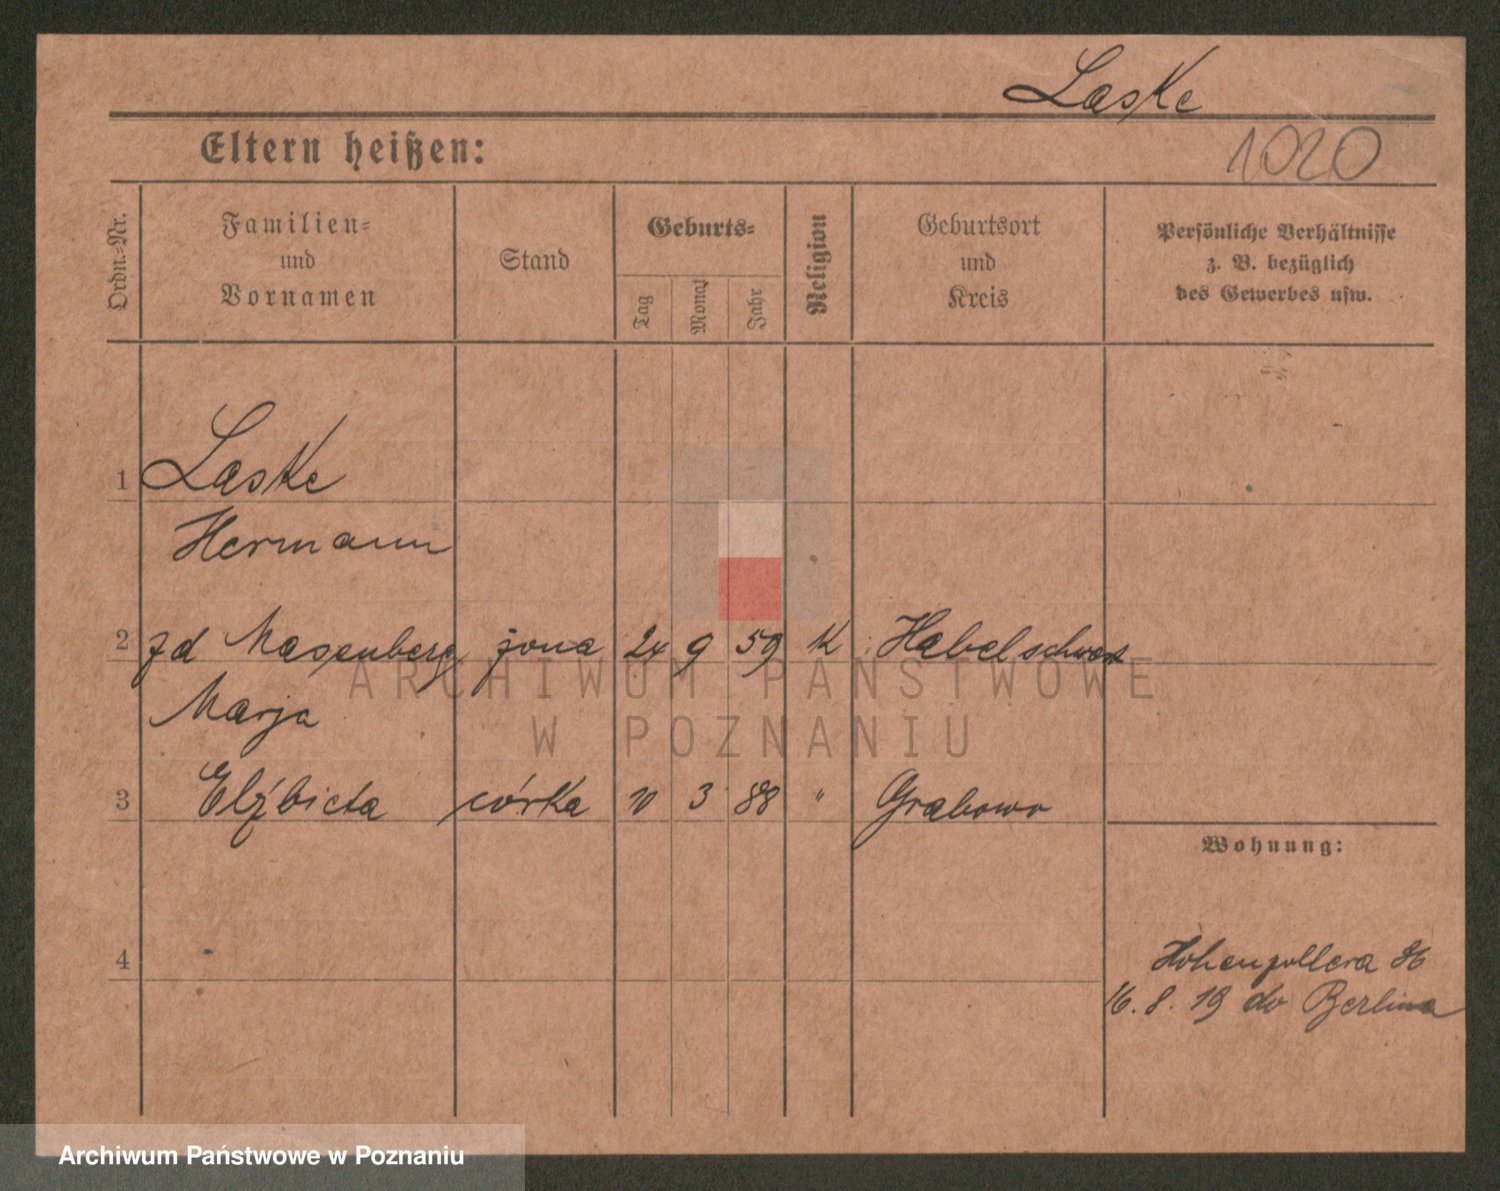 Laske
1020
Eltern heißen:
Ordn.-Nr.
Familien-
und
Vornamen
Stand
Geburts-
Tag
Monat
Jahr
Religion
Geburtsort
und
Kreis
Persönliche Verhältnisse
z. B. bezüglich
des Gewerbes usw.
1 Laske
Hermann
2 zd Masenberg żona 24 9 59 K Habelschwest
Marja
3 Elżbieta córka 10 3 88 " Grabowo
Wohnung:
4
Hohenzollera 36
16. 8. 19 do Berlina
ARCHIWUM PAŃSTWOWE
W POZNANIU
Archiwum Państwowe w Poznaniu